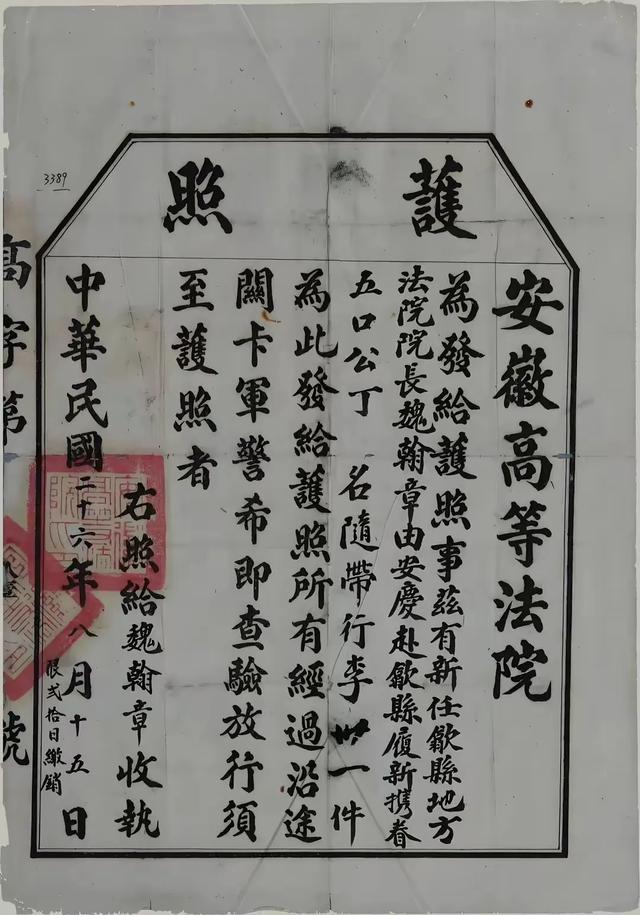 3389
護照
安徽高等法院
為發給護照事茲有新任歙縣地方
法院院長魏翰章由安慶赴歙縣履新携眷
五口公丁 名隨帶行李卅一件
為此發給護照所有經過沿途
關卡軍警希即查驗放行須
至護照者
右照給魏翰章收執
中華民國二十六年八月十五日
限弍拾日繳銷
高字第
號